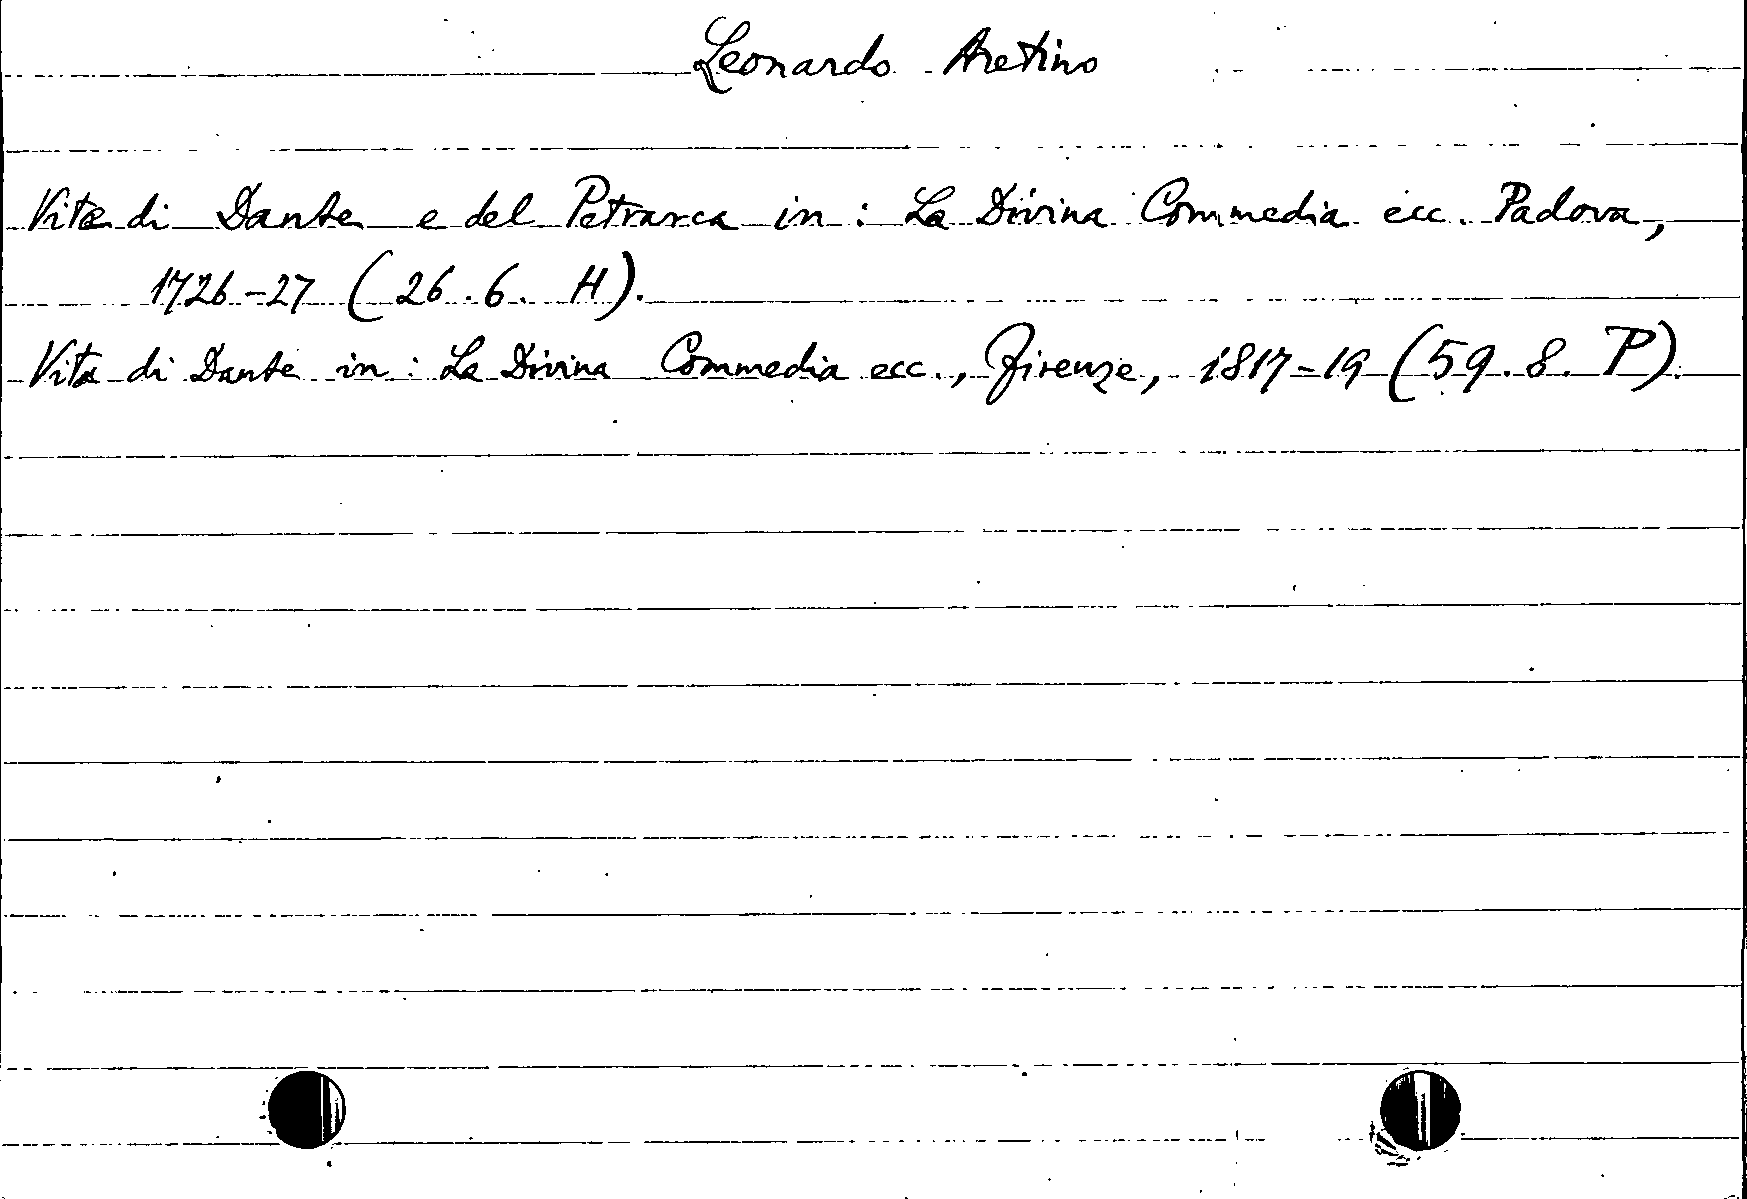 Leonardo Aretino
Vita di Dante e del Petrarca in : La Divina Commedia ecc. Padova,
1726-27 ( 26.6. H).
Vita di Dante in : La Divina Commedia ecc., Firenze, 1817-19 (59.8. P).